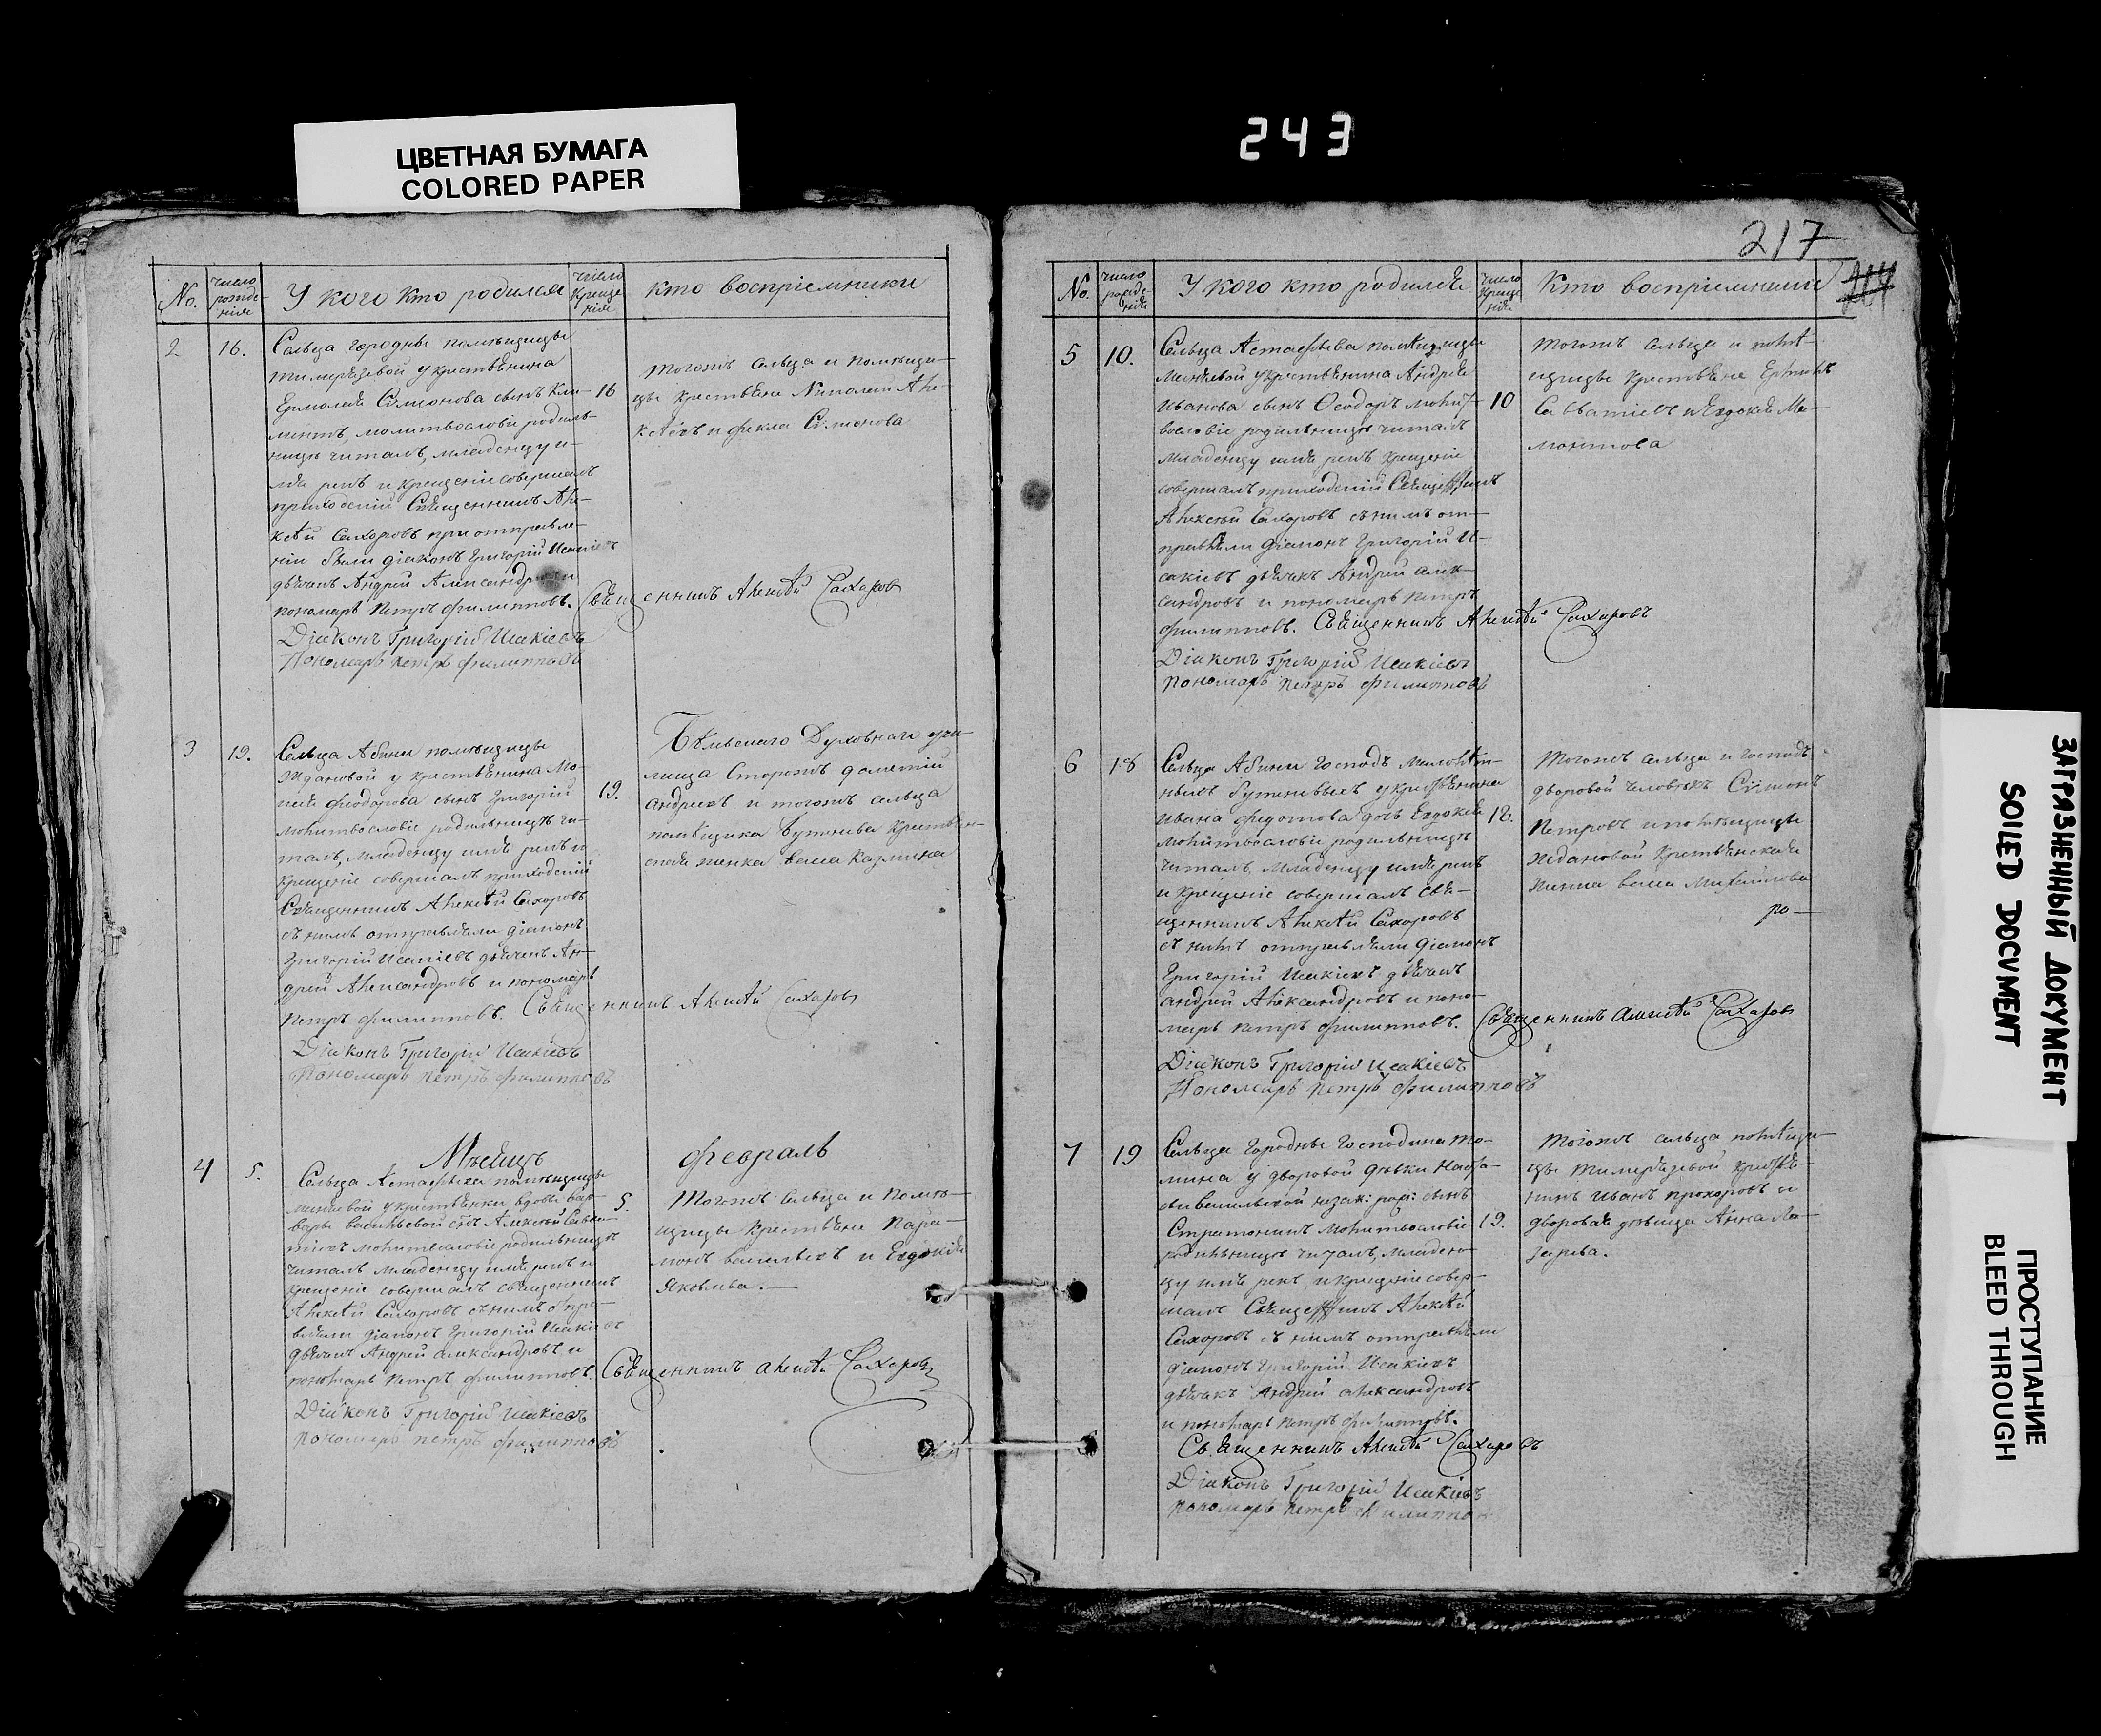 ЦВЕТНАЯ БУМАГА
COLORED PAPER
243
217
No.
число рожде-
нія
У кого кто родился
число Креще
нія
кто воспріемники
2
16.
Сельца городны помѣщицы
тимирязевой у крестьянина
Ермолая Сѵмонова сынъ Кли-
16
ментъ, молитвословіе родиль-
ницѣ читалъ, младенцу и-
мя рекъ и крещеніе совершалъ
приходскій Священникъ Але-
ксѣй Сахаровъ при отправле-
ніи были діаконъ Григорій Исакіевъ
дьячекъ Андрей Александровъ и
пономарь Петръ филипповъ. Священникъ Алексѣй Сахаровъ
Діаконъ Григорій Исакіевъ
Пономарь Петръ филипповъ
тогожъ сельца и помѣщи-
цы крестьяне
и фекла Сѵмонова
3
19.
Сельца Абины помѣщицы
Ждановой у крестьянина Мо-
сея феодорова сынъ Григорій
19.
молитвословіе родильницѣ чи-
талъ, младенцу имя рекъ и
крещеніе совершалъ приходскій
Священникъ Алексѣй Сахаровъ
съ нимъ отправляли діаконъ
Григорій Исакіевъ дьячекъ Ан-
дрей Александровъ и пономарь
Петръ филипповъ. Священникъ Алексѣй Сахаровъ
Діаконъ Григорій Исакіевъ
Пономарь Петръ филипповъ
Бѣльскаго Духовнаго учи-
лища Сторожъ дометій
андреевъ и тогожъ сельца
помѣщика Бутенева Крестьян-
ская женка васса Казмина
Мѣсяцъ
февраль
4
5.
Сельца Астафьева помѣщицы
у крестьянки вдовы вар-
5.
вары васильевой сынъ Алексѣй Савва-
тіевъ молитвословіе родильницѣ
читалъ младенцу имя рекъ и
крещеніе совершалъ священникъ
Алексѣй Сахаровъ съ нимъ отпра-
вляли діаконъ Григорій Исакіевъ
дьячекъ Андрей александровъ и
пономарь Петръ филипповъ. Священникъ алексѣй Сахаровъ
Діаконъ Григорій Исакіевъ
Пономарь петръ филипповъ
Тогожъ Сельца и помѣ-
щицы крестьяне Пара-
монъ васильевъ и Евдокія
Яковлева.
No.
число рожде-
нія
У кого кто родился
число Креще
нія
Кто воспріемники
5
10.
Сельца Астафьева помѣщицы
у крестьянина Андрея
Иванова сынъ Ѳеодоръ молит-
10
вословіе родильницѣ читалъ
младенцу имя рекъ крещеніе
совершалъ приходскій Священникъ
Алексѣй Сахаровъ съ нимъ от-
правляли діаконъ Григорій И-
сакіевъ дьячекъ Андрей алек-
сандровъ и пономарь Петръ
филипповъ. Священникъ Алексѣй Сахаровъ
Діаконъ Григорій Исакіевъ
пономарь Петръ филипповъ
тогожъ сельца и помѣ-
щицы крестьяне
Савватіевъ и Евдокія Ма-
монтова
6
18
Сельца Абины Господъ
Бутеневыхъ у крестьянина
Ивана федотова дочь Евдокія
18.
молитвословіе родильницѣ
читалъ, младенцу имя рекъ
и крещеніе совершалъ Свя-
щенникъ Алексѣй Сахаровъ
съ нимъ отправляли діаконъ
Григорій Исакіевъ дьячекъ
андрей Александровъ и поно-
марь петръ филипповъ. Священникъ алексѣй Сахаровъ
Діаконъ Григорій Исакіевъ
Пономарь петръ филипповъ
Тогожъ сельца и господъ
дворовой человѣкъ Сѵмонъ
Петровъ и помѣщицы
Ждановой Крестьянская
женка васса
ро-
7
19
Сельца Городны Господина То-
мина у дворовой дѣвки Наста-
сьи васильевой незак: рож: сынъ
Стратоникъ молитвословіе
19.
родильницѣ читалъ, младен-
цу имя рекъ, и крещеніе совер-
шалъ Священникъ Алексѣй
Сахаровъ съ нимъ отправляли
діаконъ Григорій Исакіевъ
дьячекъ Андрей александровъ
и пономарь петръ филипповъ.
Священникъ Алексѣй Сахаровъ
Діаконъ Григорій Исакіевъ
пономарь петръ филиппов
Тогожъ сельца помѣщи-
цы тимирязевой крестья-
нинъ Иванъ прохоровъ и
дворовая дѣвица Анна Ла-
зарева.
ЗАГРЯЗНЕННЫЙ ДОКУМЕНТ
SOILED DOCUMENT
ПРОСТУПАНИЕ
BLEED THROUGH